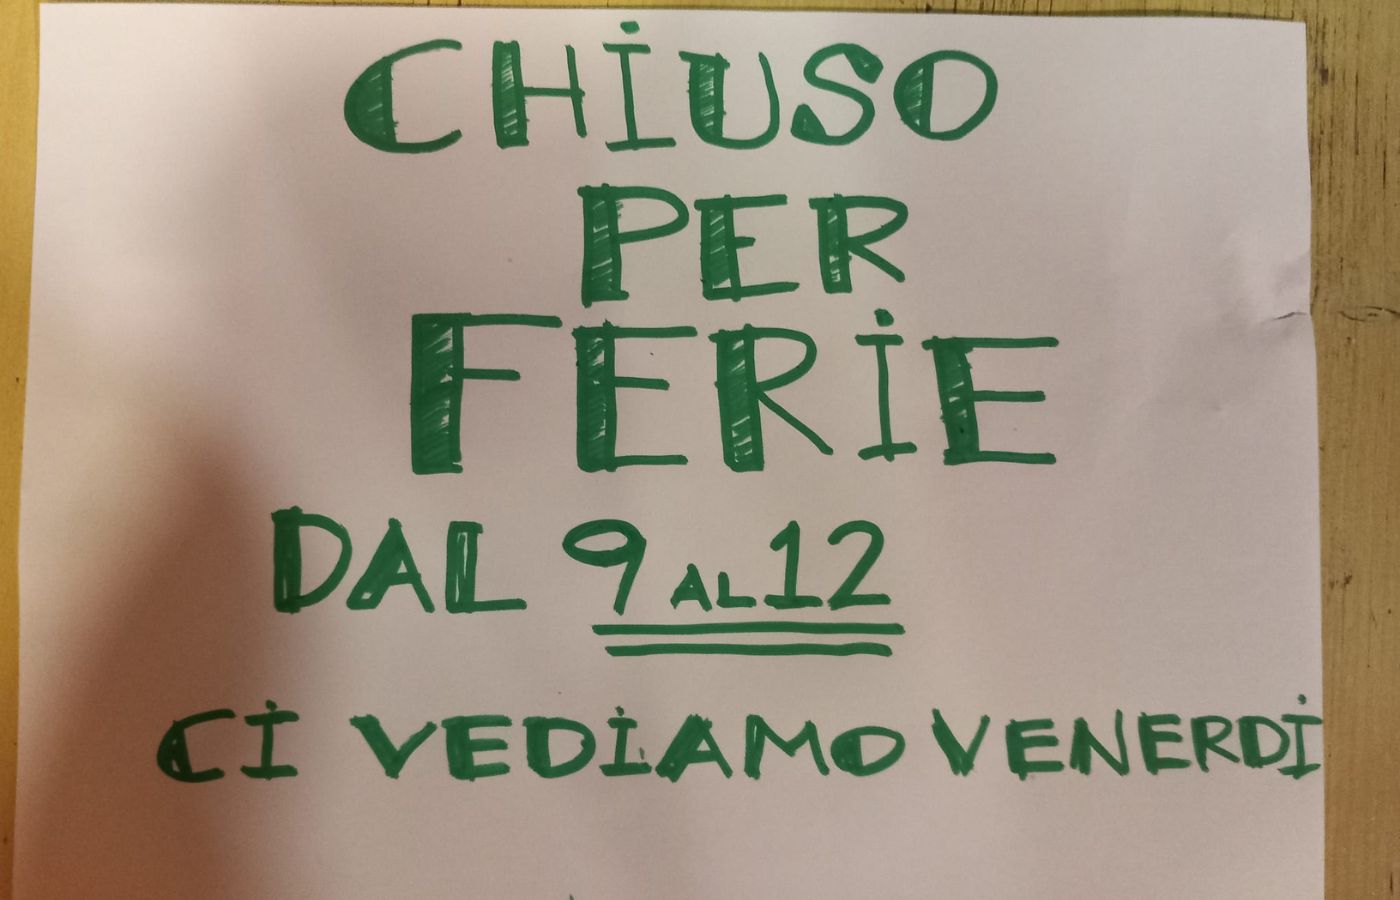 CHIUSO
PER
FERIE
DAL 9 AL 12
CI VEDIAMO VENERDÌ